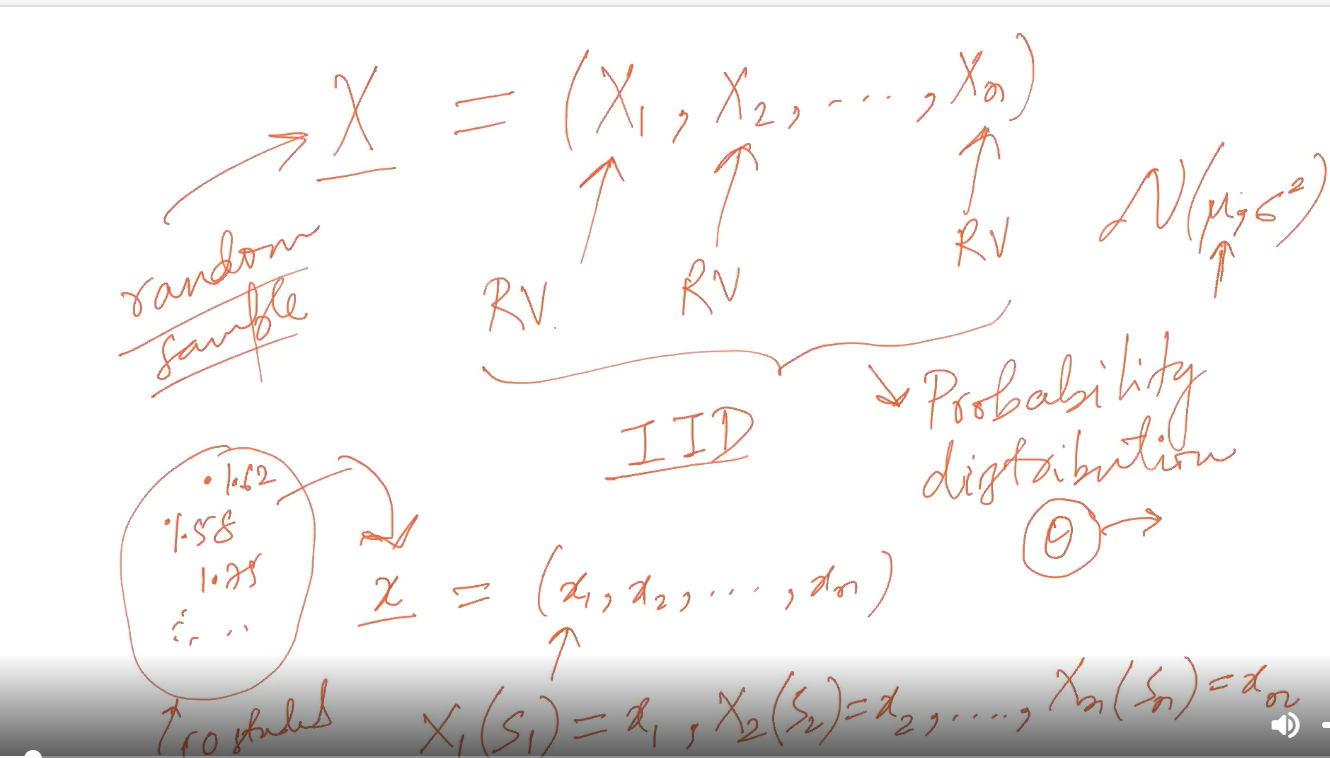 X = (X₁, X₂, ..., Xₙ)
random
sample
RV RV RV
N(μ, σ²)
IID
Probability
distribution
θ
1.62
1.58
1.75
x = (x₁, x₂, ..., xₙ)
X₁(S₁) = x₁, X₂(S₂) = x₂, ...., Xₙ(Sₙ) = xₙ